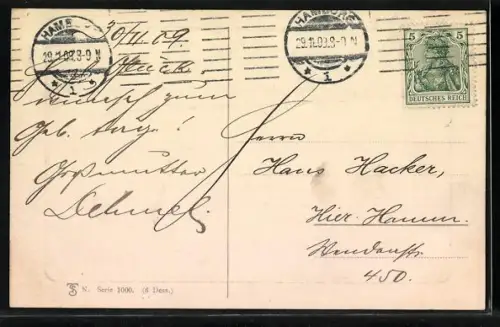 HAMBURG
29.11.09.8-9 N
1
HAMBURG
29.11.09.8-9 N
1
5 5
DEUTSCHES REICH
30/11.09.
Glück
wunsch zum
Geb. tag!
Großmutter
Dehmel.
Herrn
Hans Hacker,
Hier-Hamm.
Wendenstr.
450.
S K. Serie 1000. (8 Dess.)